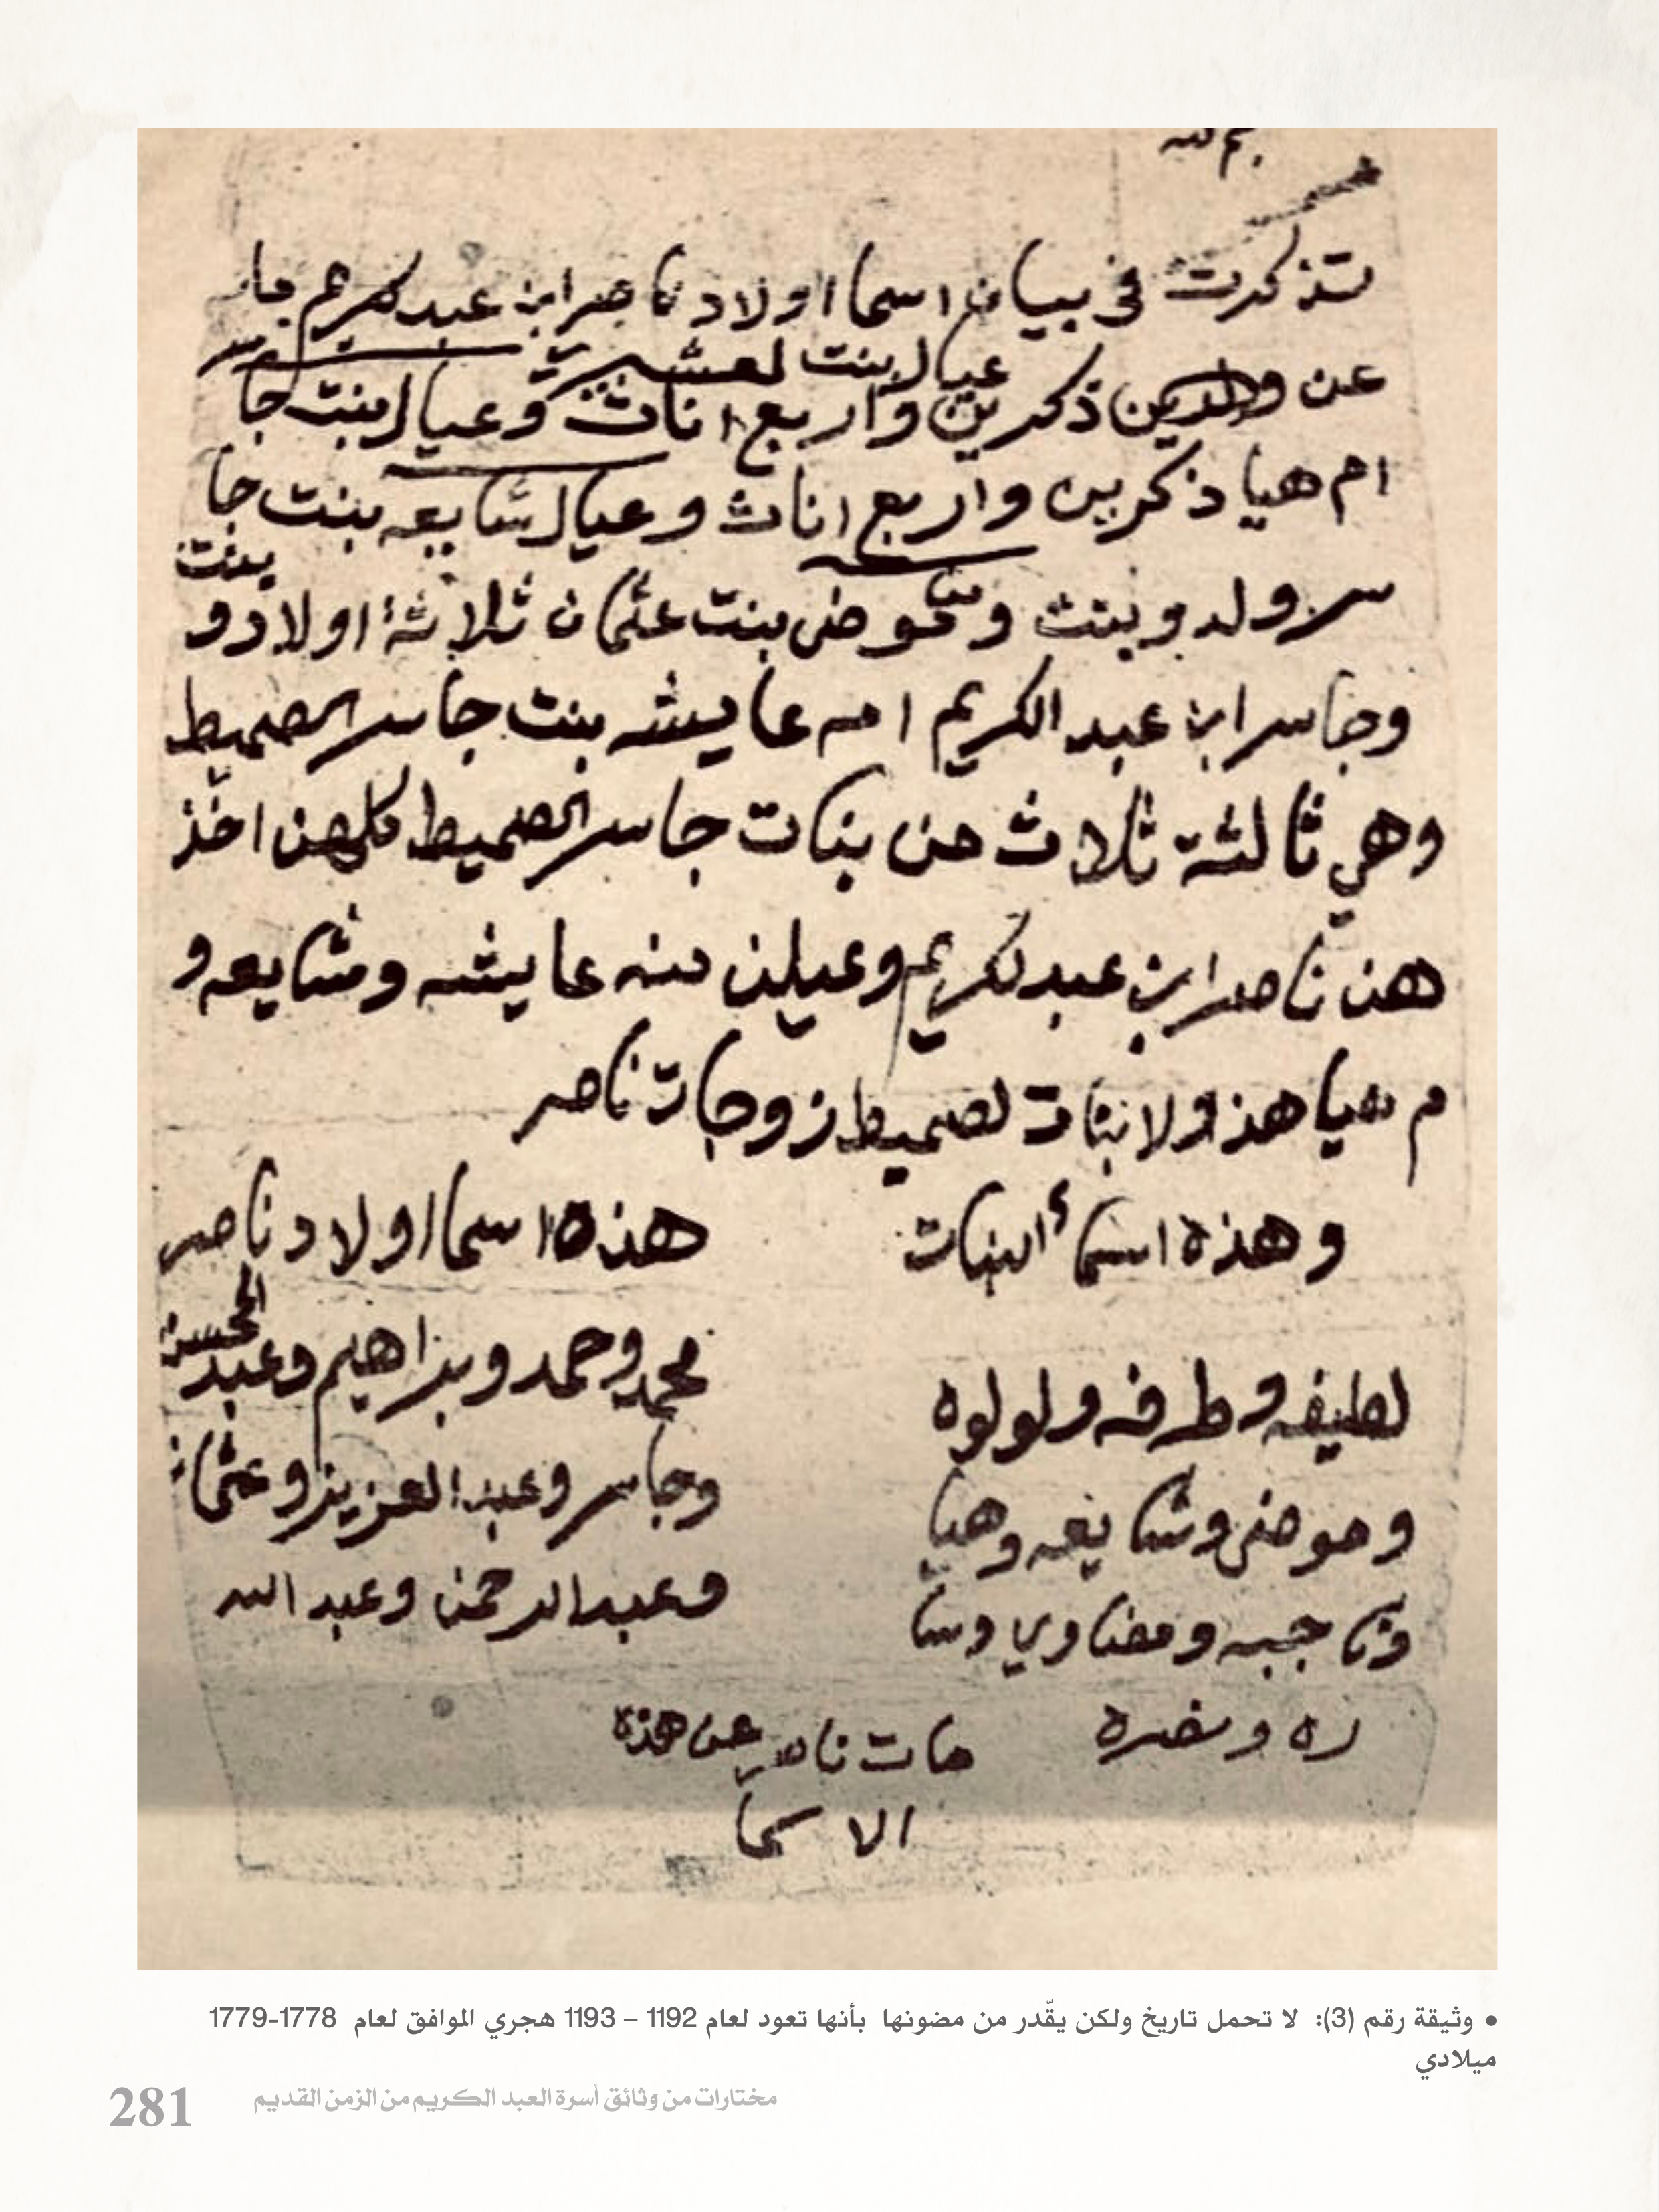 بم الله
تذكرت في بيان اسما اولاد ناصر ابن عبد كريم مات
عيال بنت لعشيري
عن ولدين ذكرين واربع اناث وعيال بنت جاسر
ام هيا ذكرين واربع اناث وعيال شايعه بنت جا
سر ولد وبنت وموضي بنت عثمان ثلاثة اولاد و بنت
وجاسر ابن عبد الكريم امه عايشه بنت جاسر الصميط
وهي ثالثة ثلاث من بنات جاسر الصميط كلهن اخذ
هن ناصر ابن عبد لكريم وعيلن منه عايشه وشايعه و
م هيا هذولا بنات لصميط زوجات ناصر
وهذه اسمأ البنات
لطيفه وطرفه ولولوه
وموضي وشايعه وهيا
وناجبه ومضاوي وسا
ره ونضره
هذه اسما اولاد ناصر
محمد وحمد وبراهيم وعبد المحسن
وجاسر وعبد العزيز وعثمان
وعبد الرحمن وعبد الله
مات ناصر عن هذه
الاسما
• وثيقة رقم (3): لا تحمل تاريخ ولكن يقّدر من مضونها بأنها تعود لعام 1192 – 1193 هجري الموافق لعام 1778-1779
ميلادي
مختارات من وثائق أسرة العبد الكريم من الزمن القديم
281